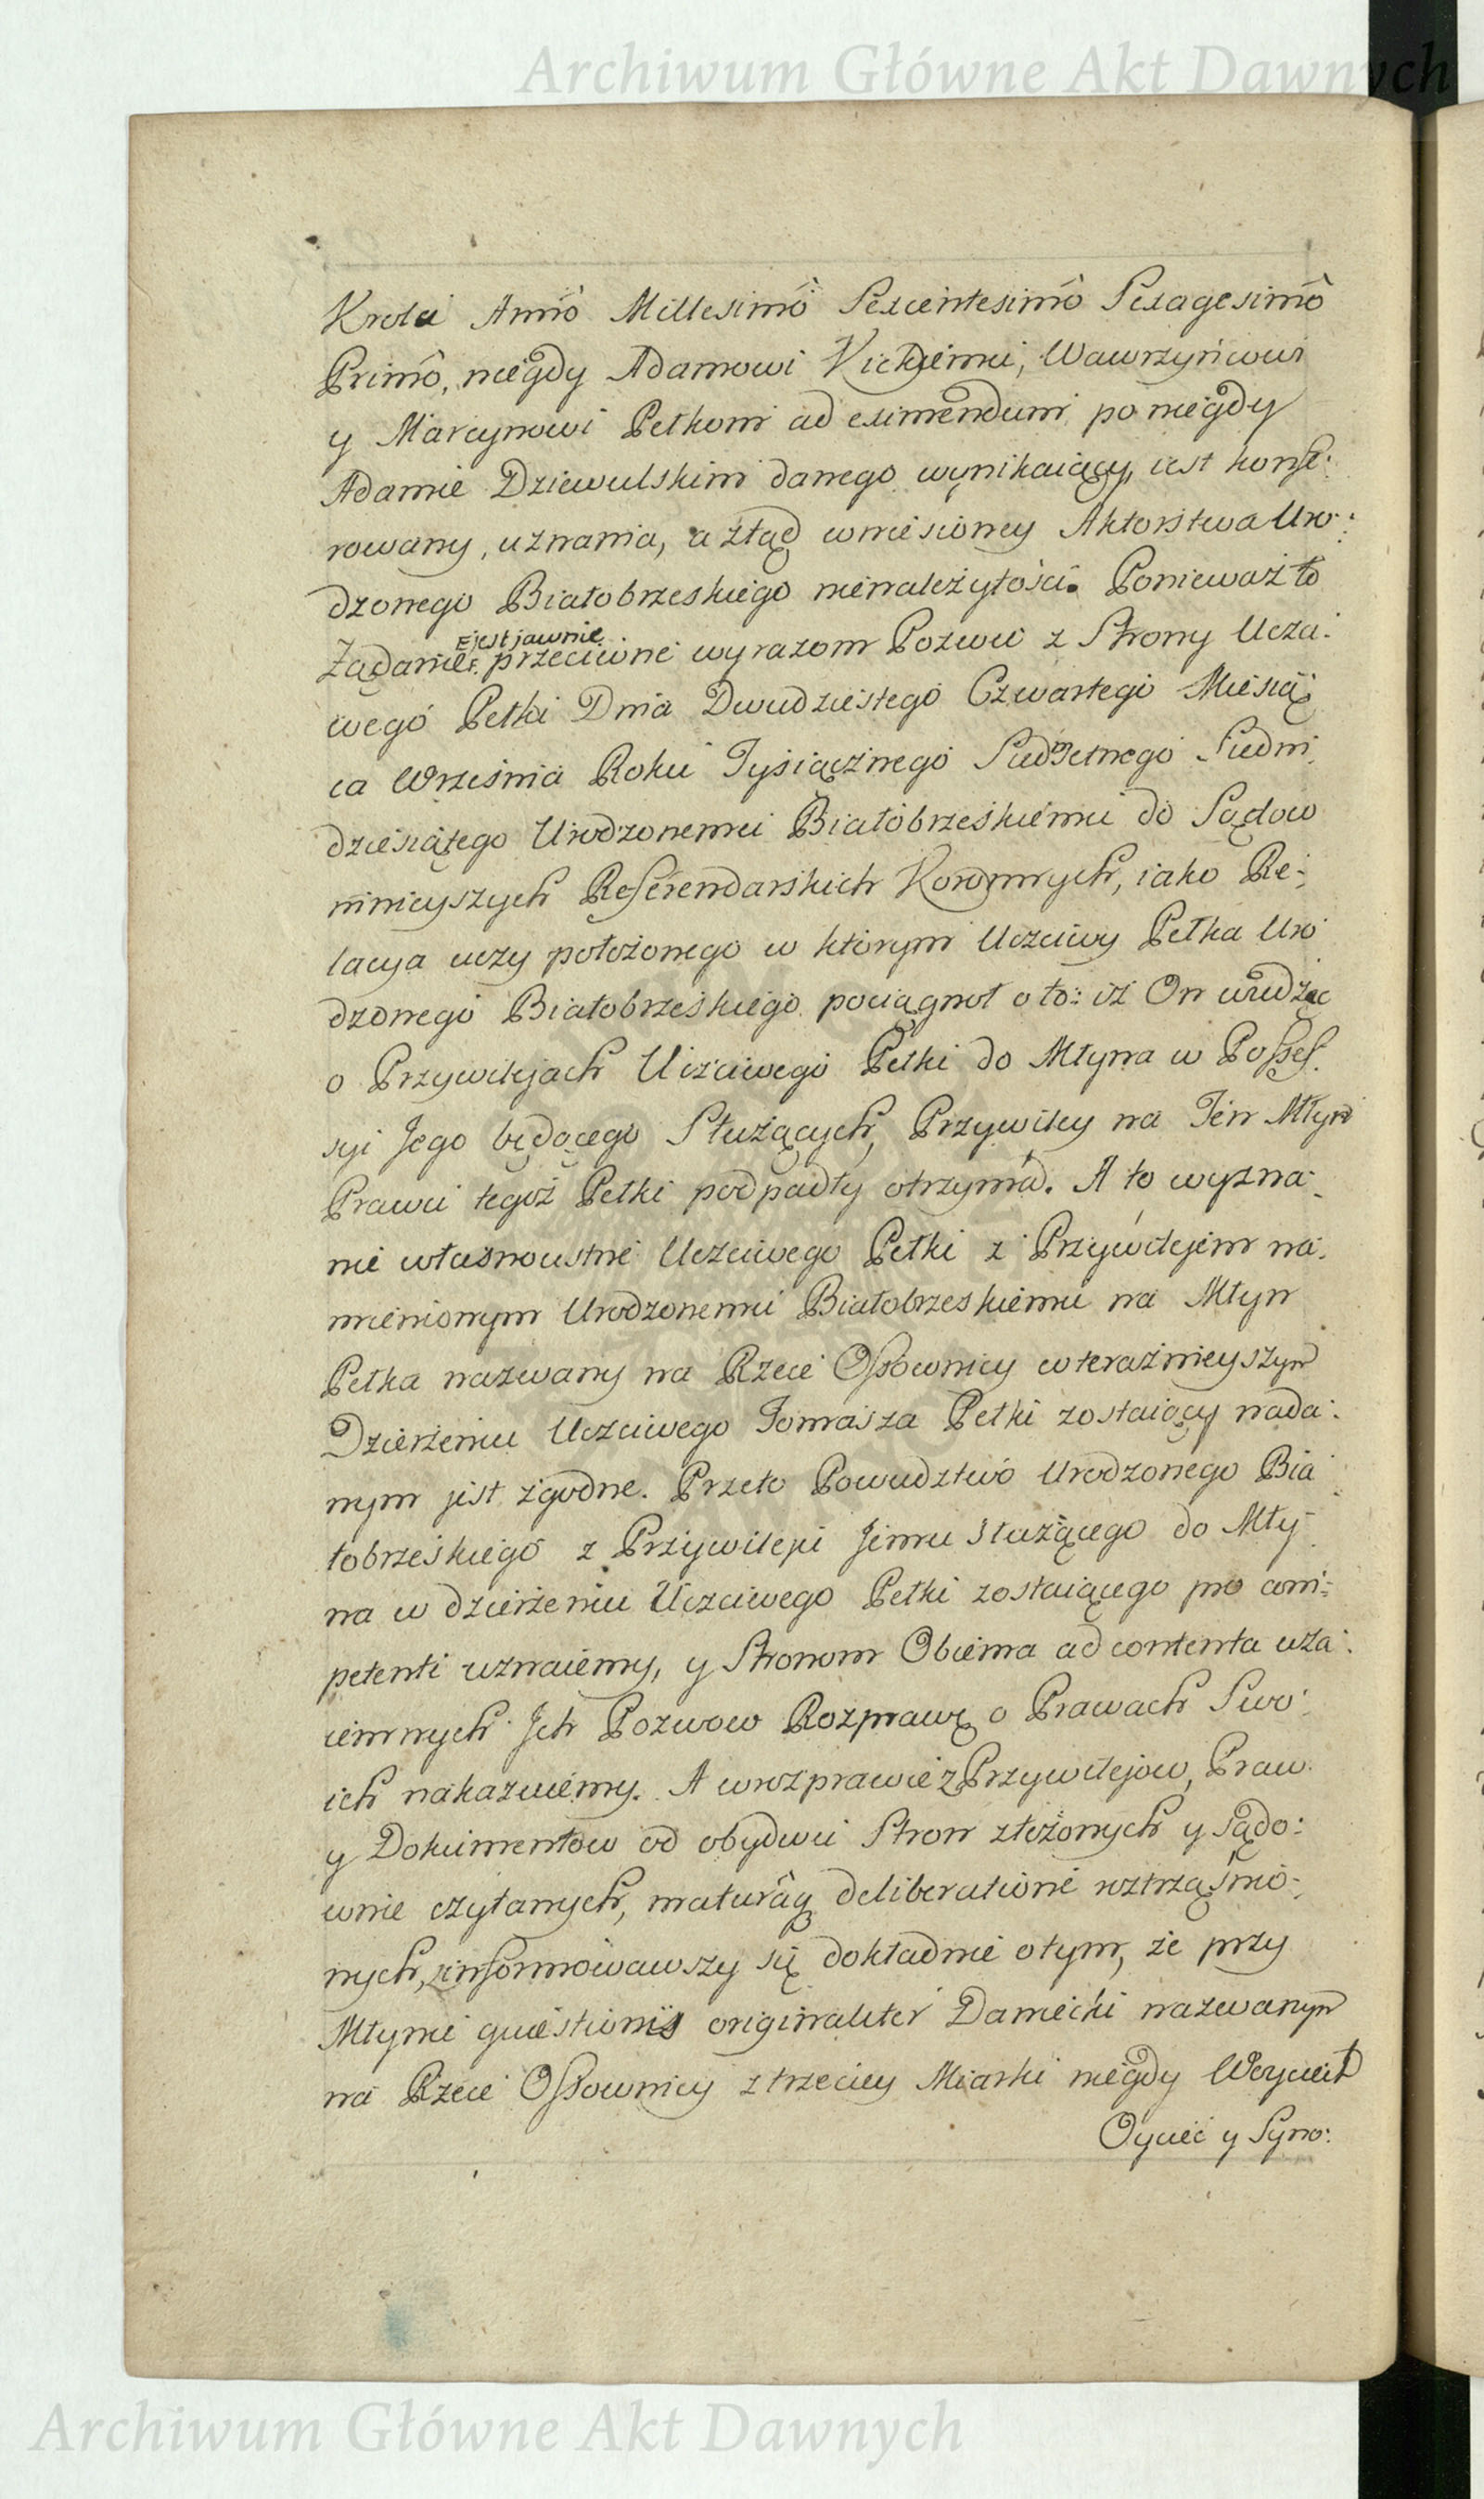 Archiwum Główne Akt Dawnych
Krola Annô Millesimô Sexcentesimô Sexagesimô
Primô, niegdy Adamowi Kickiemu, Wawrzyńcowi
y Marcynowi Pełkom ad eximendum po niegdy
Adamie Dziewulskim danego wynikaiący, iest konfe:
rowany, uznania, a ztąd wniesioney Aktorstwa Uro:
dzonego Białobrzeskiego nienależytości. Ponieważ to
Jest jawnie
Żądanie przeciwne wyrazom Pozwu z Strony Ucza:
wego Pełki Dnia Dwudziestego Czwartego Miesią:
ca Września Roku Tysiącznego Siedsetnego Siedm:
dziesiątego Urodzonemu Białobrzeskiemu do Sądow
ninieyszych Referendarskich Koronnych, iako Re:
lacya uczy położonego w którym Uczciwy Pełka Uro
dzonego Białobrzeskiego pociągnoł o to: iż On wiedząc
o Przywilejach Uczciwego Pełki do Młyna w Posses:
syi Jego będącego Służących, Przywiley na Ten Młyn
Prawu tegoż Pełki podpadły otrzymał. A to wyzna:
nie własnoustne Uczciwego Pełki z Przywilejem na:
mienionym Urodzonemu Białobrzeskiemu na Młyn
Pełka nazwany na Rzece Ossownicy w teraźnieyszym
Dzierżeniu Uczciwego Tomasza Pełki zostaiący nada:
nym jest zgodne. Przeto Powodztwo Urodzonego Bia
łobrzeskiego z Przywileju Jemu służącego do Mły
na w dzierżeniu Uczciwego Pełki zostaiącego pro com:
petenti uznaiemy, y Stronom Obiema ad contenta wza:
iemnych Jch Pozwow Rozprawę o Prawach Swo:
ich nakazuiemy. A w rozprawie z Przywilejow, Praw
y Dokumentow od obydwu Stron złożonych y sądo:
wnie czytanych, maturâq deliberatione roztrząśnio:
nych, informowawszy się dokładnie o tym, że przy
Młynie quæstionis originaliter Daniecki nazwanym
na Rzece Ossownicy z trzeciey Miarki niegdy Woyciech
Oyciec y Syno:
Archiwum Główne Akt Dawnych